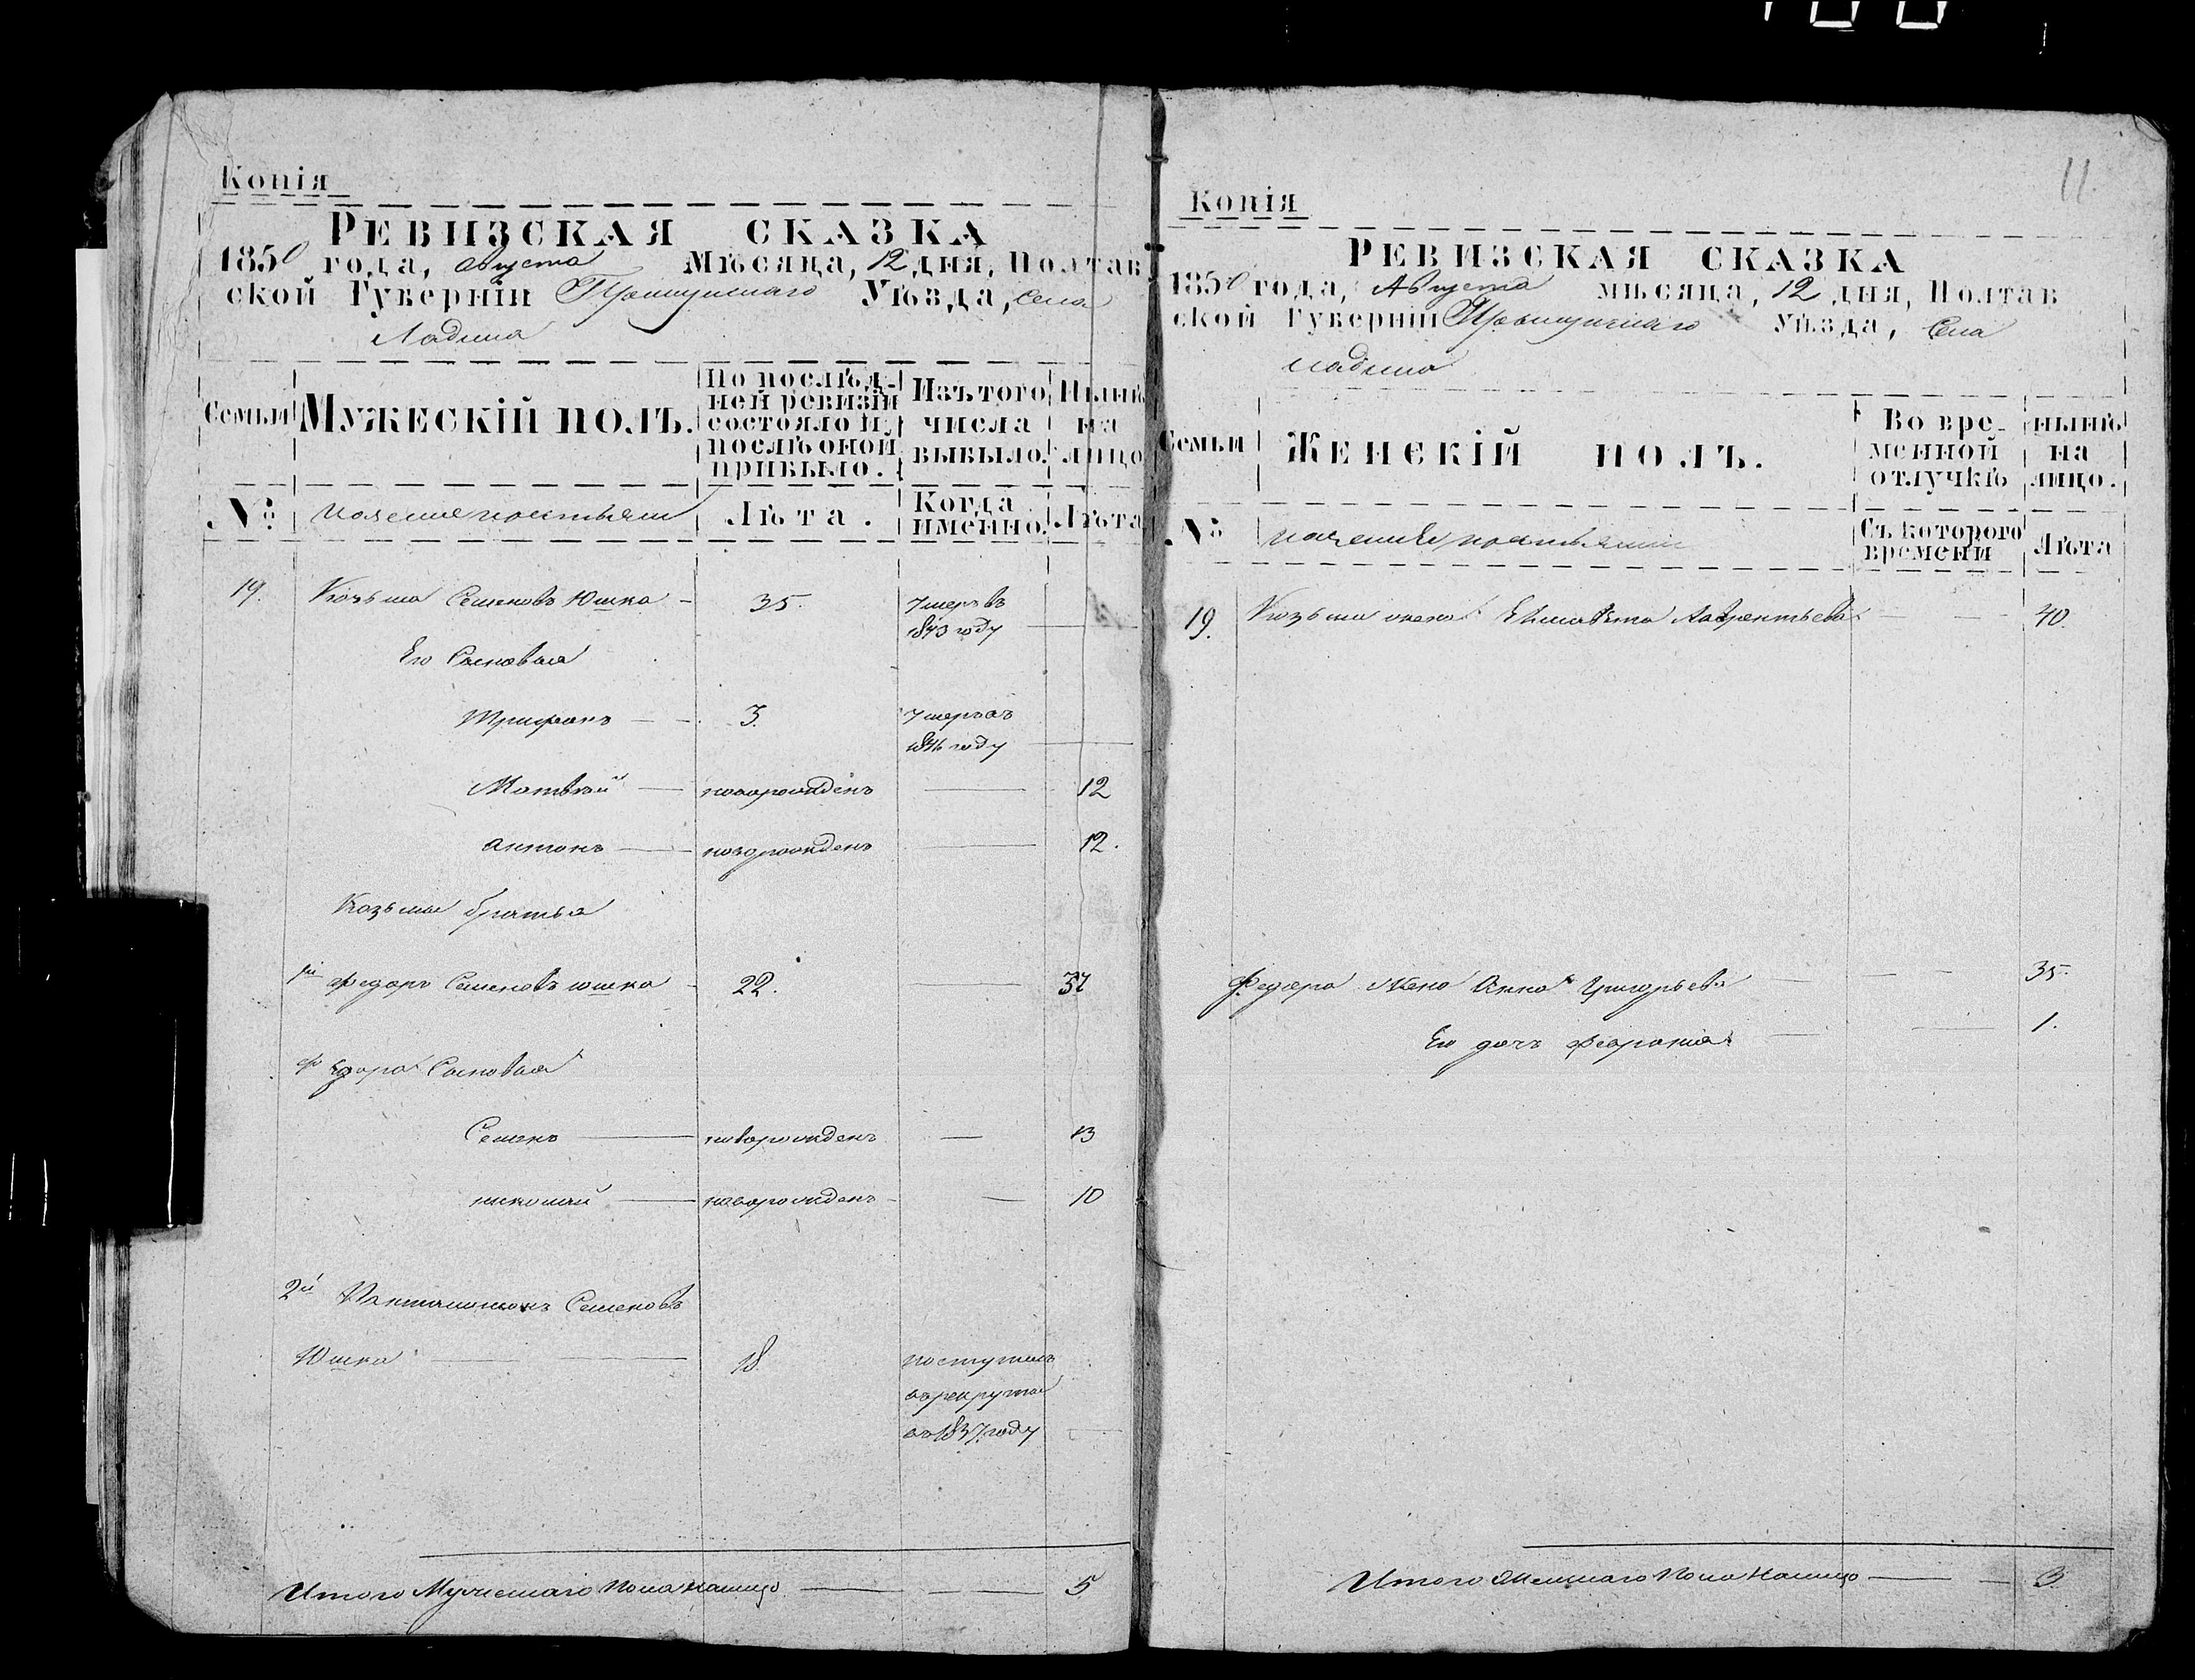 Копія
РЕВИЗСКАЯ СКАЗКА
1850 года, августа Мѣсяца, 12 дня, Полтав
ской Губерніи Прилуцкаго Уѣзда, Села
Ладина
Семьи
МУЖЕСКІЙ ПОЛЪ.
По послѣд-
ней ревизіи
состояло и
послѣ оной
прибыло.
Изъ того
числа
выбыло.
Нынѣ
на
лицо
№
Лѣта.
Когда
именно.
Лѣта
19. Козьма Семеновъ Юшка - 35. Умеръ въ
1843 году
Его Сыновья
Трифонъ - - 3. Умеръ въ
1846 году
Матвѣй новорожденъ 12
антонъ новорожденъ 12.
Козьмы братья
1й Федоръ Семеновъ юшка 22. 37
Федора Сыновья
Семенъ новорожденъ 13
николай новорожденъ 10
2й Пантелимонъ Семеновъ
Юшка 18. поступилъ
въ рекруты
въ 1837 году
Итого Мужескаго Пола налицо 5
11
Копія
РЕВИЗСКАЯ СКАЗКА
1850 года, Августа мѣсяца, 12 дня, Полтав
ской Губерніи Прилуцкаго Уѣзда, Села
ладина
Семьи
ЖЕНСКІЙ ПОЛЪ.
Во вре-
менной
отлучкѣ
нынѣ
на
лицо.
№
Съ которого
времени
Лѣта
19. Козьмы жена Елисавета Лаврентьева 40.
Федора Жена Анна Григорьева 35.
Его дочь Феврония 1.
Итого Женскаго Пола Налицо 3.